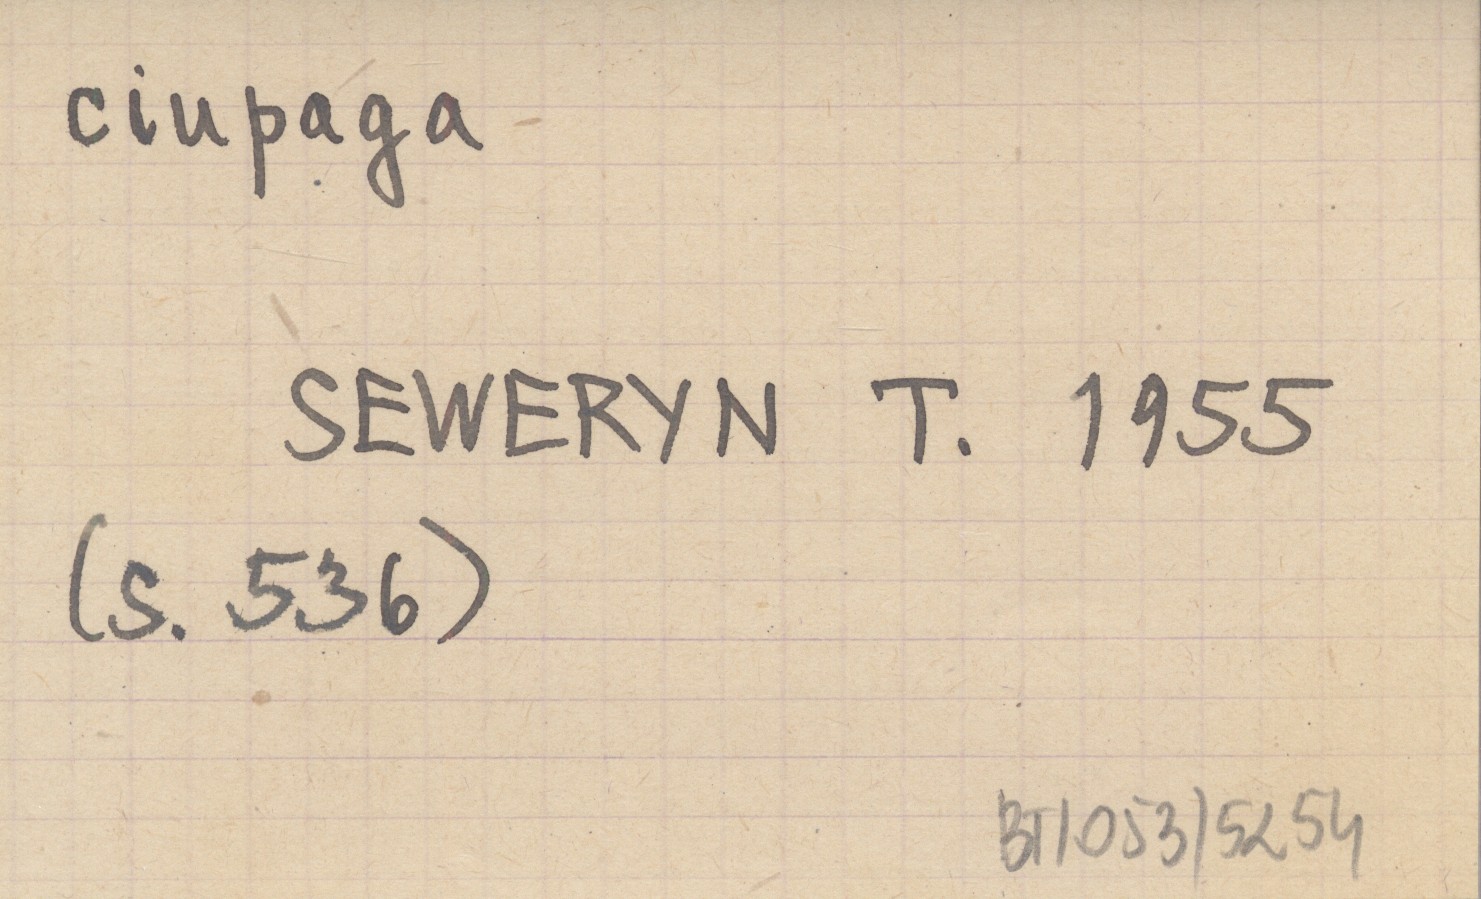 ciupaga
SEWERYN T. 1955
(s. 536)
BT/053/5254